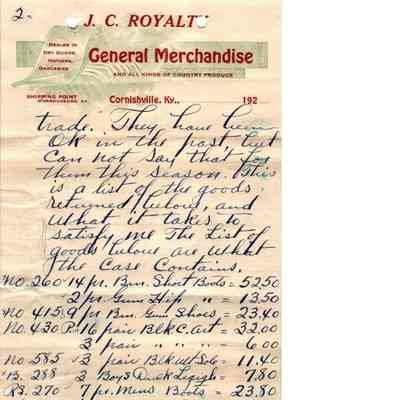 2.
J. C. ROYALTY
DEALER IN
DRY GOODS,
NOTIONS,
GROCERIES
General Merchandise
AND ALL KINGS OF COUNTRY PRODUCE
SHIPPING POINT
HARRODSBURG, KY.
Cornishville, Ky., 192
trade. They have been
OK in the past, but
Can not say that for
them this season. This
is a list of the goods
returned below, and
What it takes to
satisfy me The List of
goods below are What
the Case Contains.
No. 260 14 pr. Bm. Short Boots = 52.50
2 pr. Gum Hip " = 13.50
No 415 9 pr Bm. Gum Shoes, = 23.40
No. 430 P. 16 pair Blk C. Art = 32.00
3 pair " " = 6.00
No. 585 3 pair Blk All Sole = 11.40
B. 288 3 Boys Duck = 7.80
RS. 270 7 pr. Mens Boots = 23.80